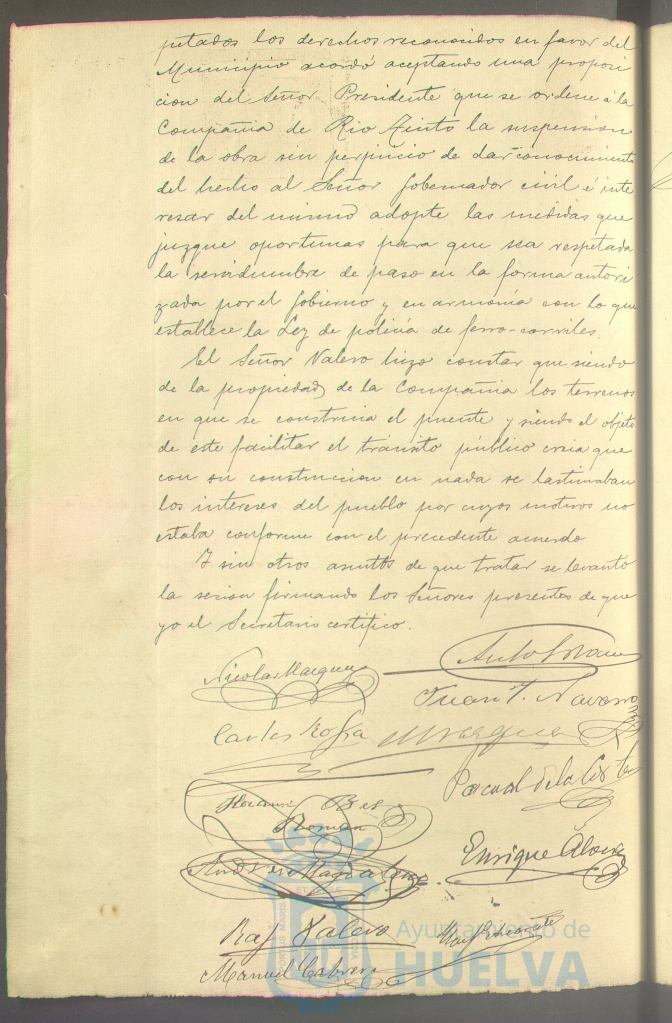 petados los derechos reconocidos en favor del
Municipio acordó aceptando una proposi
cion del Señor Presidente que se ordene á la
Compañia de Rio Tinto la suspension
de la obra sin perjuicio de dar conocimiento
del hecho al Señor Gobernador civil é inte
resar del mismo adopte las medidas que
juzgue oportunas para que sea respetada
la servidumbre de paso en la forma autori
zada por el Gobierno y en armonía con lo que
establece la Ley de policía de ferro-carriles.
El Señor Valero hizo constar que siendo
de la propiedad de la Compañia los terrenos
en que se construia el puente y siendo el objeto
de este facilitar el tránsito público creia que
con su construccion en nada se lastimaban
los intereses del pueblo por cuyos motivos no
estaba conforme con el precedente acuerdo
Y sin otros asuntos de que tratar se levantó
la sesion firmando los Señores presentes de que
yo el Secretario certifico.
Nicolas Marquez
Juan T. Navarro
Carlos
Pascual de la
Roman
Enrique
Raf Valero
Manuel Cabrera
PORTUS MARIS ET TERRAE CUSTODIA
Ayuntamiento de
HUELVA